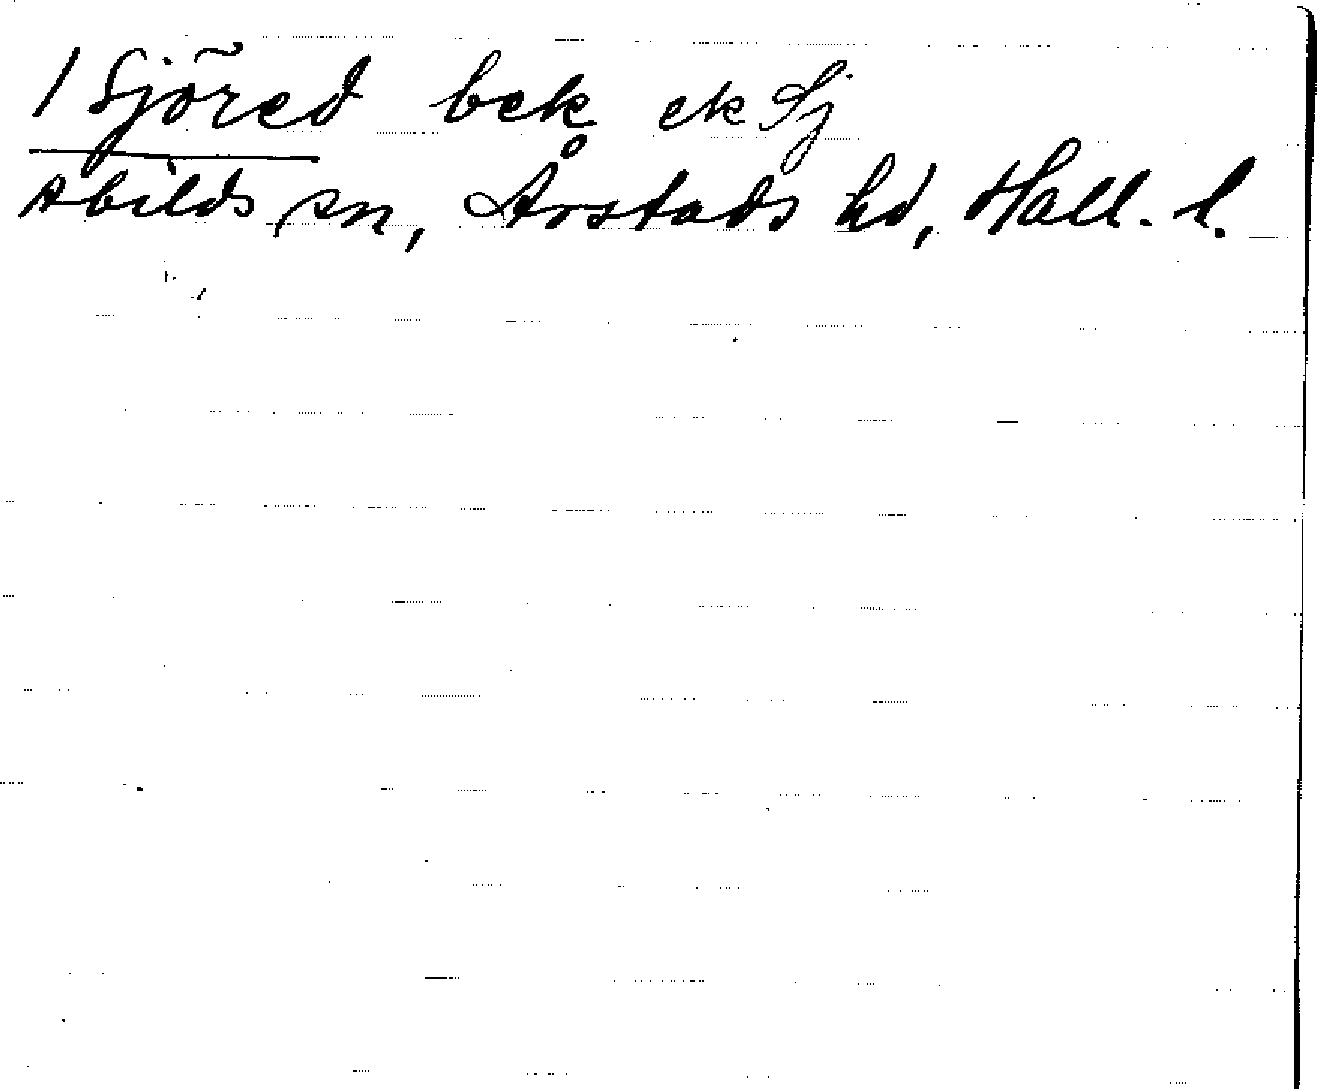 1 Sjöred bek ek Sj
Abilds sn, Årstads hd, Hall. l.